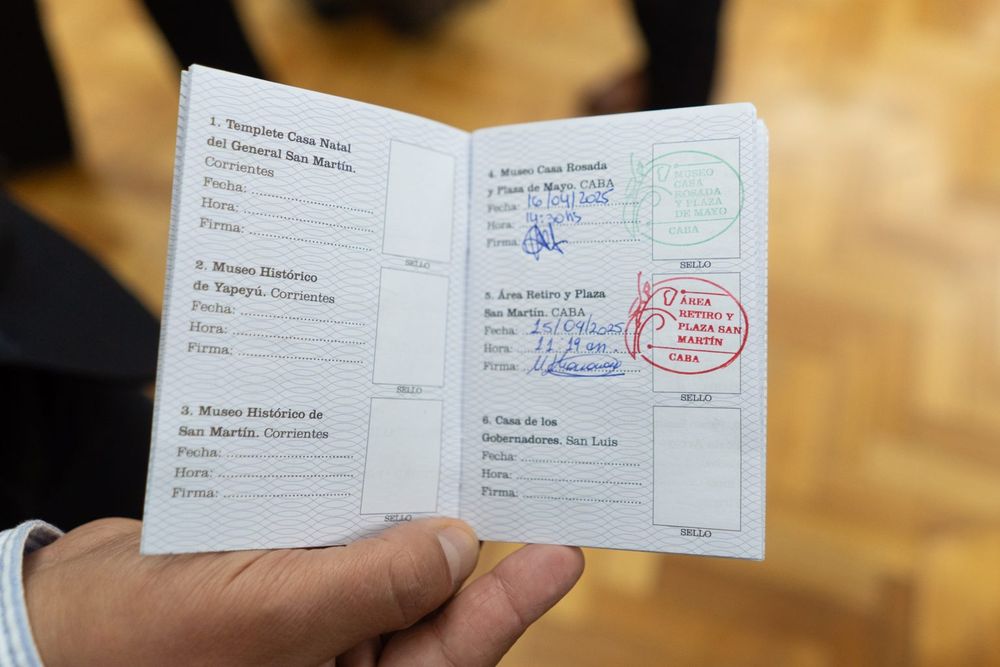 1. Templete Casa Natal
del General San Martín.
Corrientes
Fecha:
Hora:
Firma:
SELLO
2. Museo Histórico
de Yapeyú. Corrientes
Fecha:
Hora:
Firma:
SELLO
3. Museo Histórico de
San Martín. Corrientes
Fecha:
Hora:
Firma:
SELLO
4. Museo Casa Rosada
y Plaza de Mayo. CABA
Fecha: 16/04/2025
Hora: 14:30hs
Firma:
MUSEO
CASA
ROSADA
Y PLAZA
DE MAYO
CABA
SELLO
5. Área Retiro y Plaza
San Martín. CABA
Fecha: 15/04/2025
Hora: 11:19 am.
Firma:
ÁREA
RETIRO Y
PLAZA SAN
MARTÍN
CABA
SELLO
6. Casa de los
Gobernadores. San Luis
Fecha:
Hora:
Firma:
SELLO